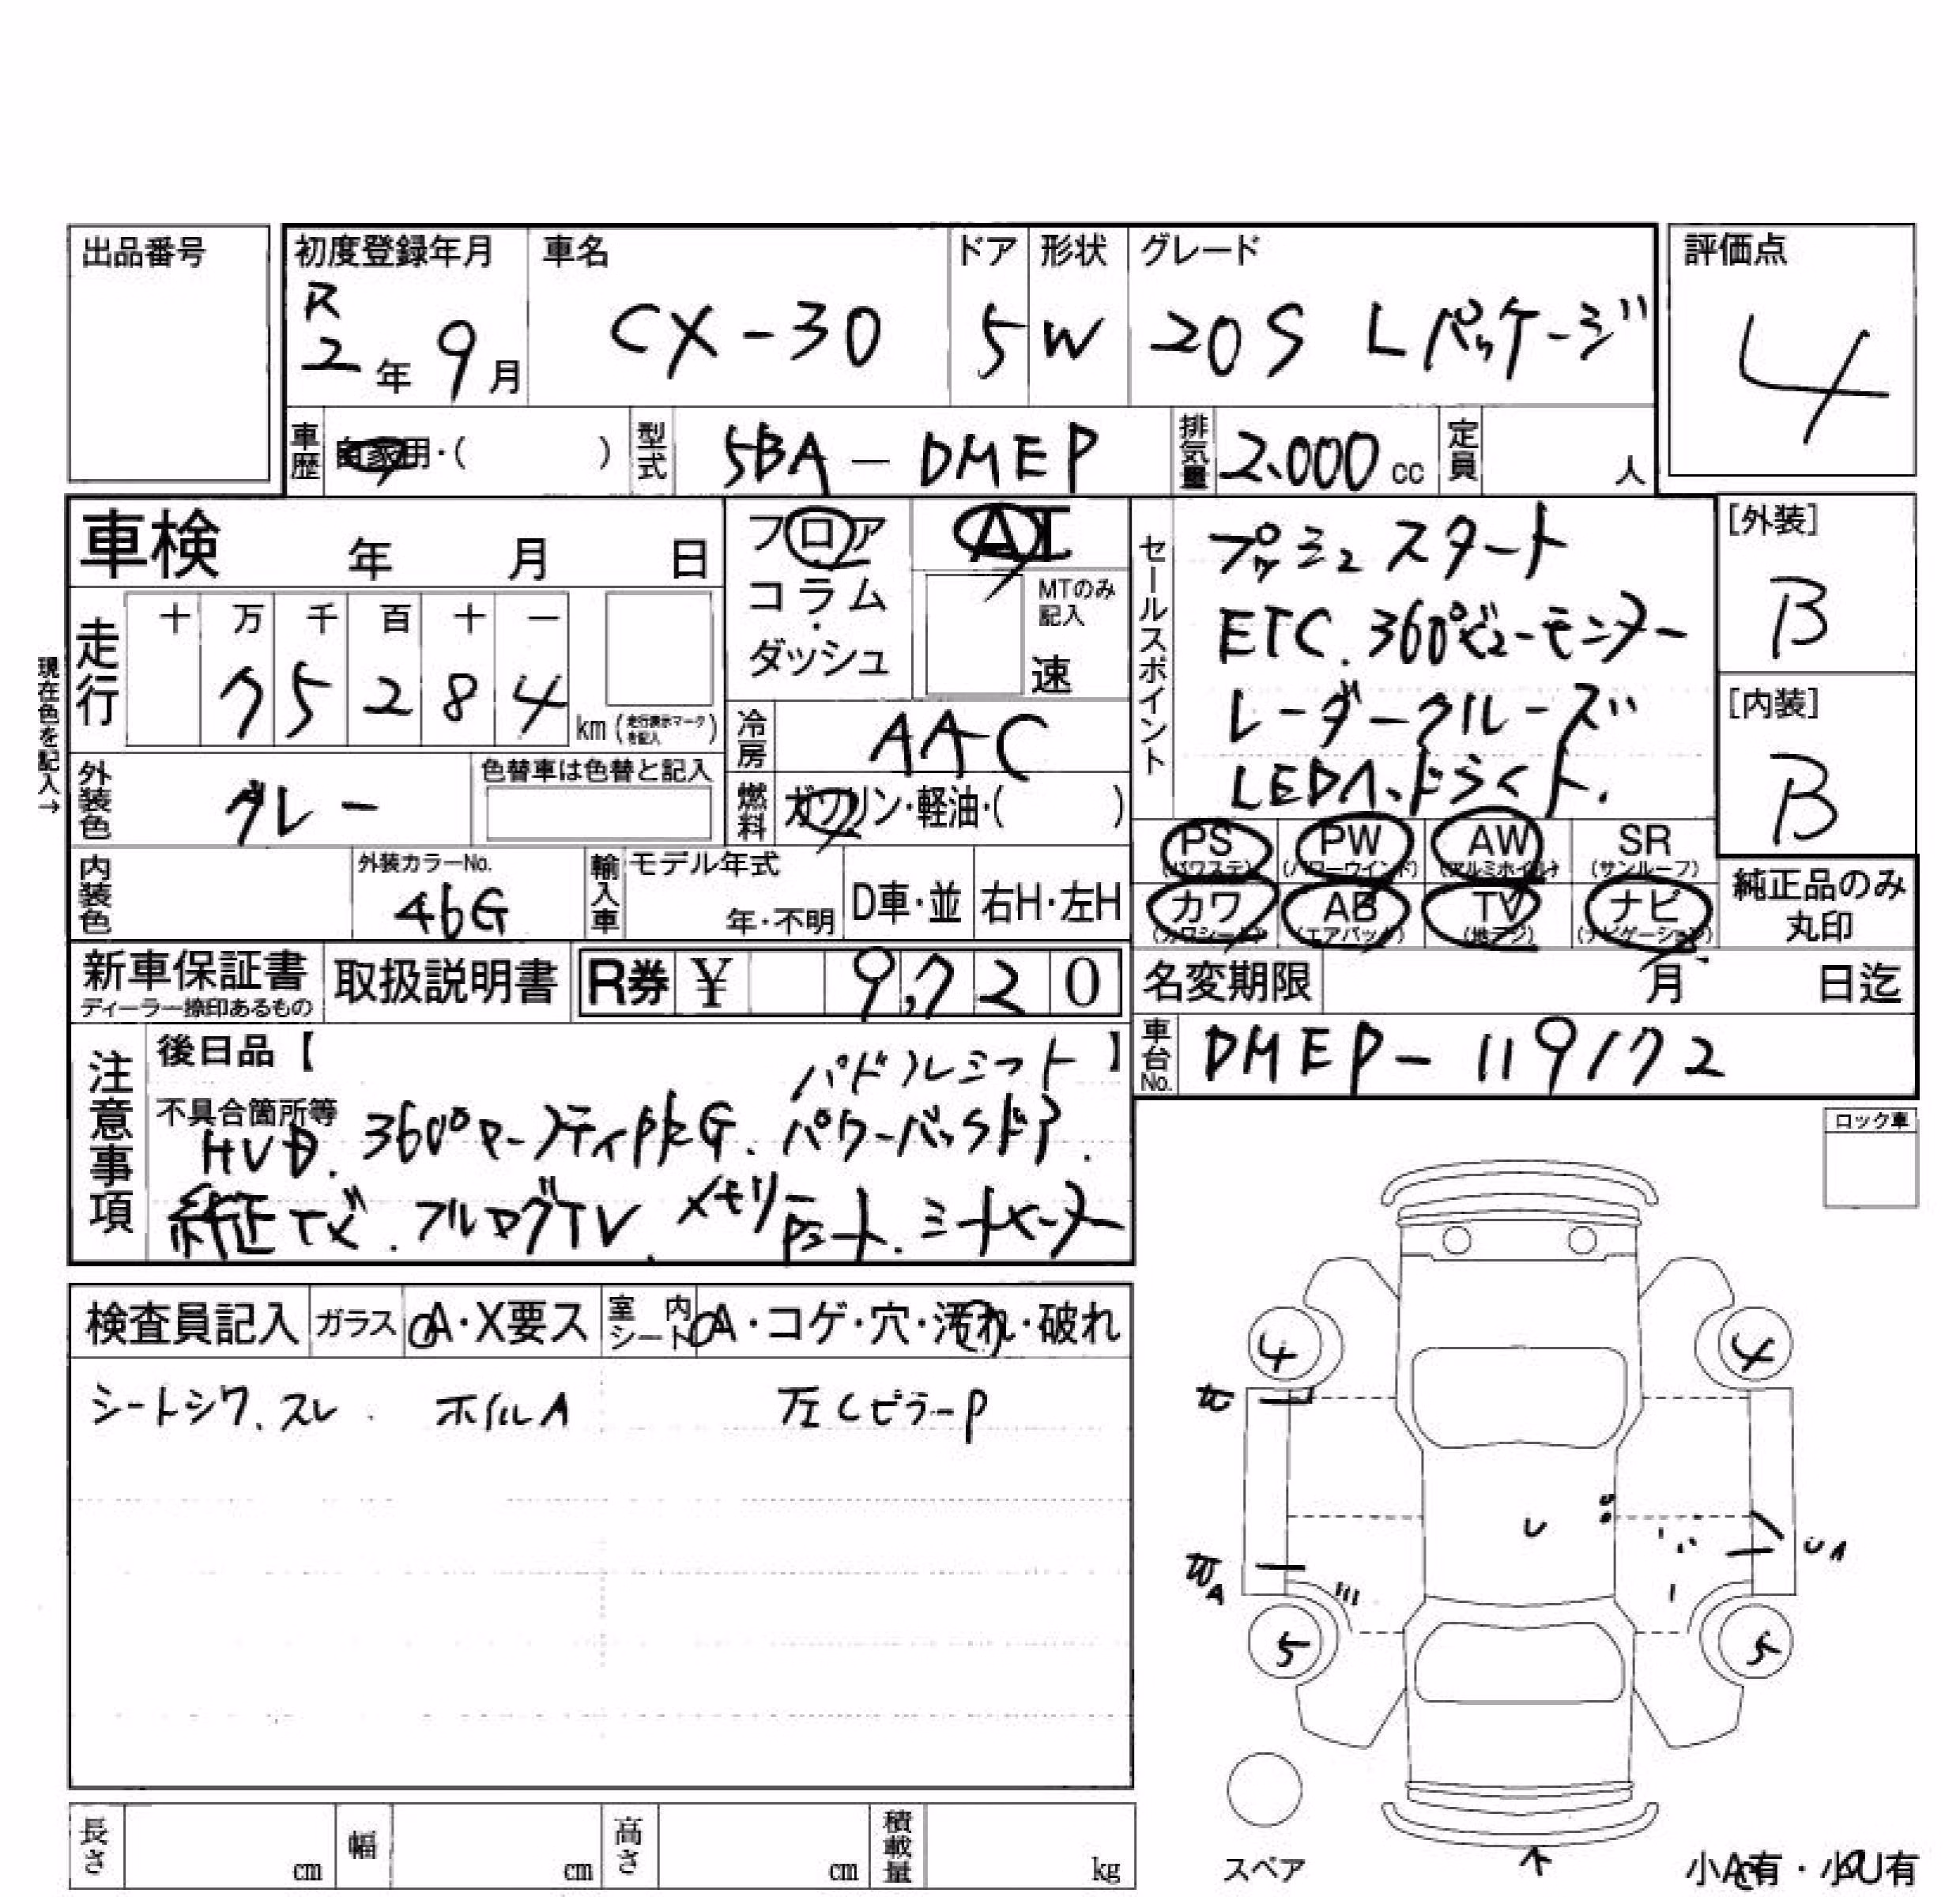 出品番号
初度登録年月 車名 ドア 形状 グレード 評価点
R2年 9月 CX-30 5 W 20S Lパッケージ 4
車歴 自家用・( ) 型式 5BA-DMEP 排気量 2.000 cc 定員 人
車検 年 月 日
フロア コラム・ダッシュ
MTのみ記入 速
セールスポイント
プッシュスタート
ETC. 360°ビューモニター
レーダークルーズ
LEDヘッドライト.
[外装] B
[内装] B
現在色を記入→
走行 十 万 千 百 十 一
75284 km (走行表示マークを記入)
冷房 AAC
外装色 グレー 色替車は色替と記入
燃料 ガソリン・軽油・( )
PS (パワステ) PW (パワーウインド) AW (アルミホイール) SR (サンルーフ)
カワ (カワシート) AB (エアバッグ) TV (地デジ) ナビ (ナビゲーション)
純正品のみ丸印
内装色 外装カラーNo. 46G 輸入車 モデル年式 年・不明 D車・並 右H・左H
新車保証書 ディーラー捺印あるもの 取扱説明書 R券 ¥ 9,720
名変期限 月 日迄
車台No. DMEP-119172
注意事項
後日品【 】
パドルシフト
不具合箇所等
HUD. 360° パワーバックドア.
純正 . フルセグTV. メモリー Pシート. シートヒーター
ロック車
検査員記入 ガラス A・X要ス 室内シート A・コゲ・穴・汚れ・破れ
シートシワ、スレ. ホイルA 左CピラーP
4 4
U
UA
A
5 5
スペア
長さ cm 幅 cm 高さ cm 積載量 kg
小A有・小U有